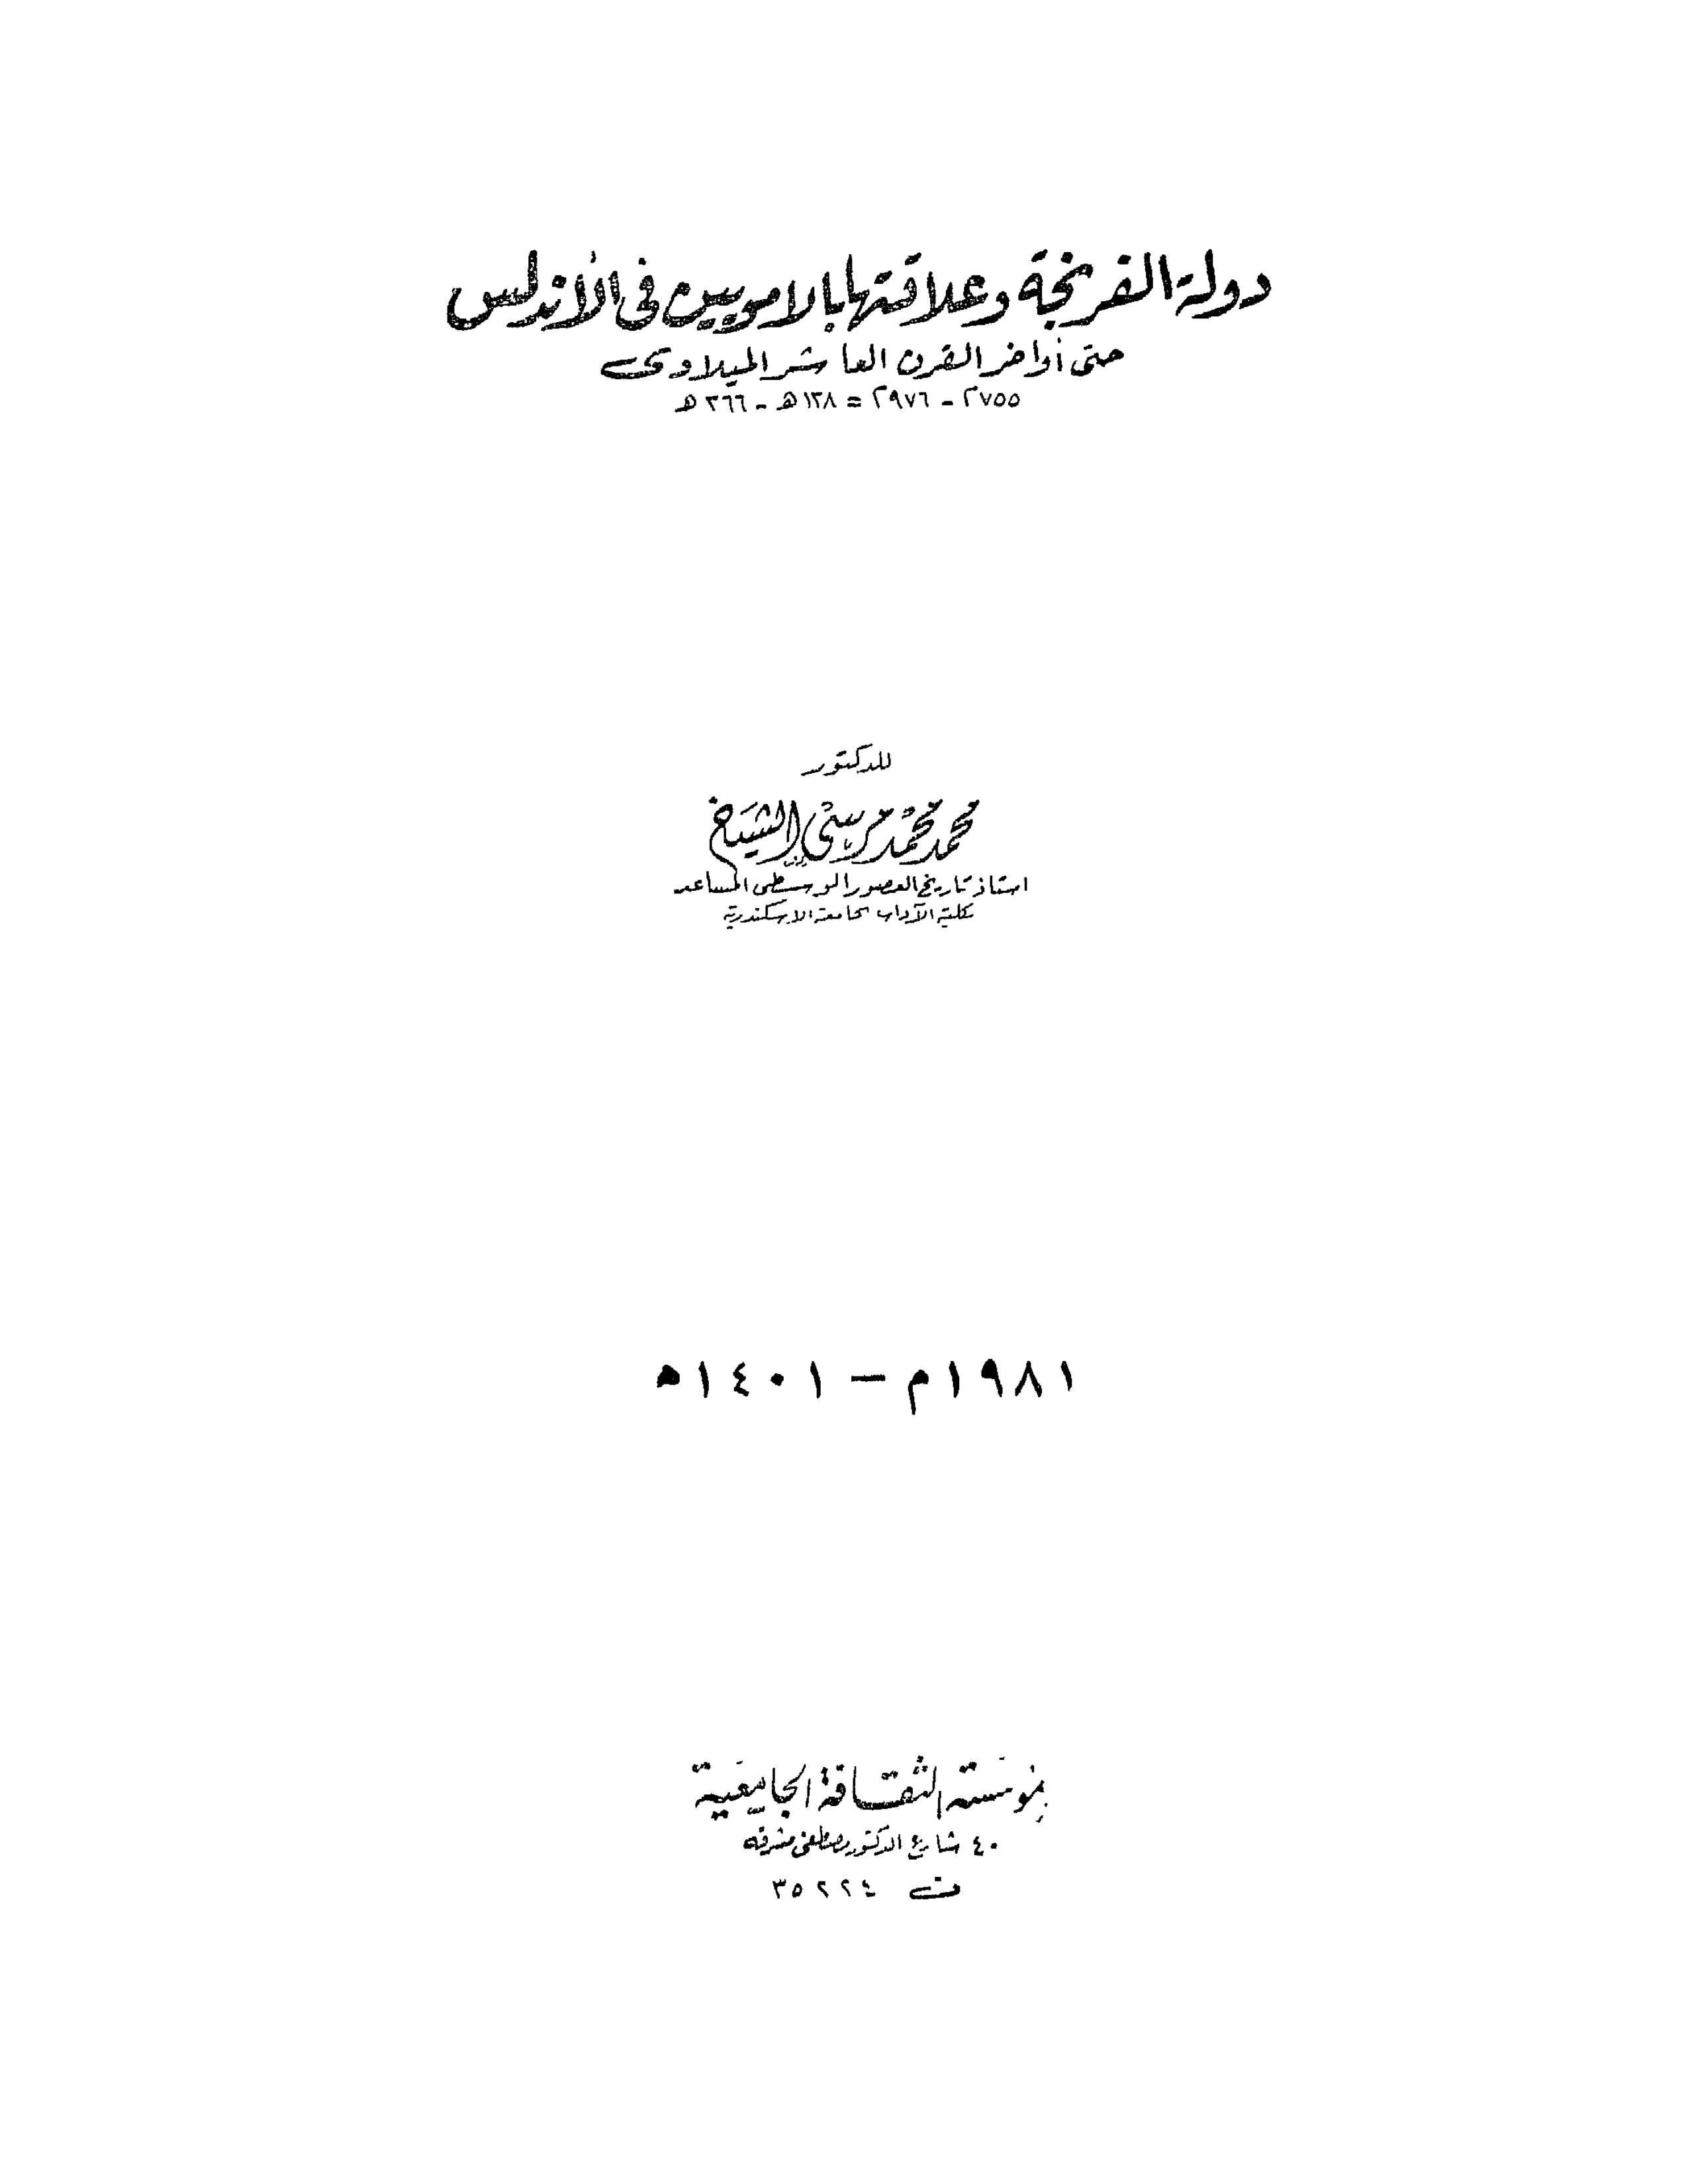 دولة الفرنجة وعلاقتها بالامويين فى الأندلس
حتى أواخر القرن العاشر الميلادى
٧٥٥م - ٩٧٦م = ١٣٨هـ - ٣٦٦هـ
للدكتور
محمد محمد مرسى الشيخ
استاذ تاريخ العصور الوسطى المساعد
بكلية الآداب جامعة الاسكندرية
١٩٨١م – ١٤٠١هـ
مؤسسة الثقافة الجامعية
٤٠ شارع الدكتور مصطفى مشرفه
ت ٣٥٢٢٤